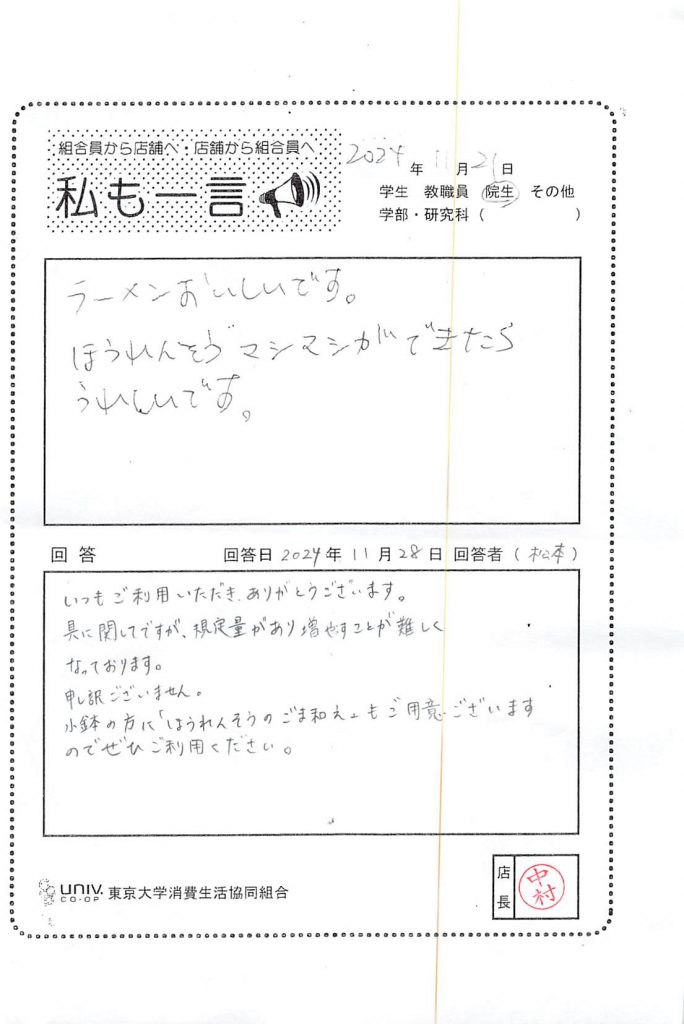 組合員から店舗へ・店舗から組合員へ
私も一言
2024年11月21日
学生 教職員 院生 その他
学部・研究科( )
ラーメンおいしいです。
ほうれんそうマシマシができたら
うれしいです。
回答 回答日 2024年11月28日 回答者(松本)
いつもご利用いただき、ありがとうございます。
具に関してですが、規定量があり増やすことが難しく
なっております。
申し訳ございません。
小鉢の方に「ほうれんそうのごま和え」もご用意ございます
のでぜひご利用ください。
UNIV. CO-OP 東京大学消費生活協同組合
店長 中村